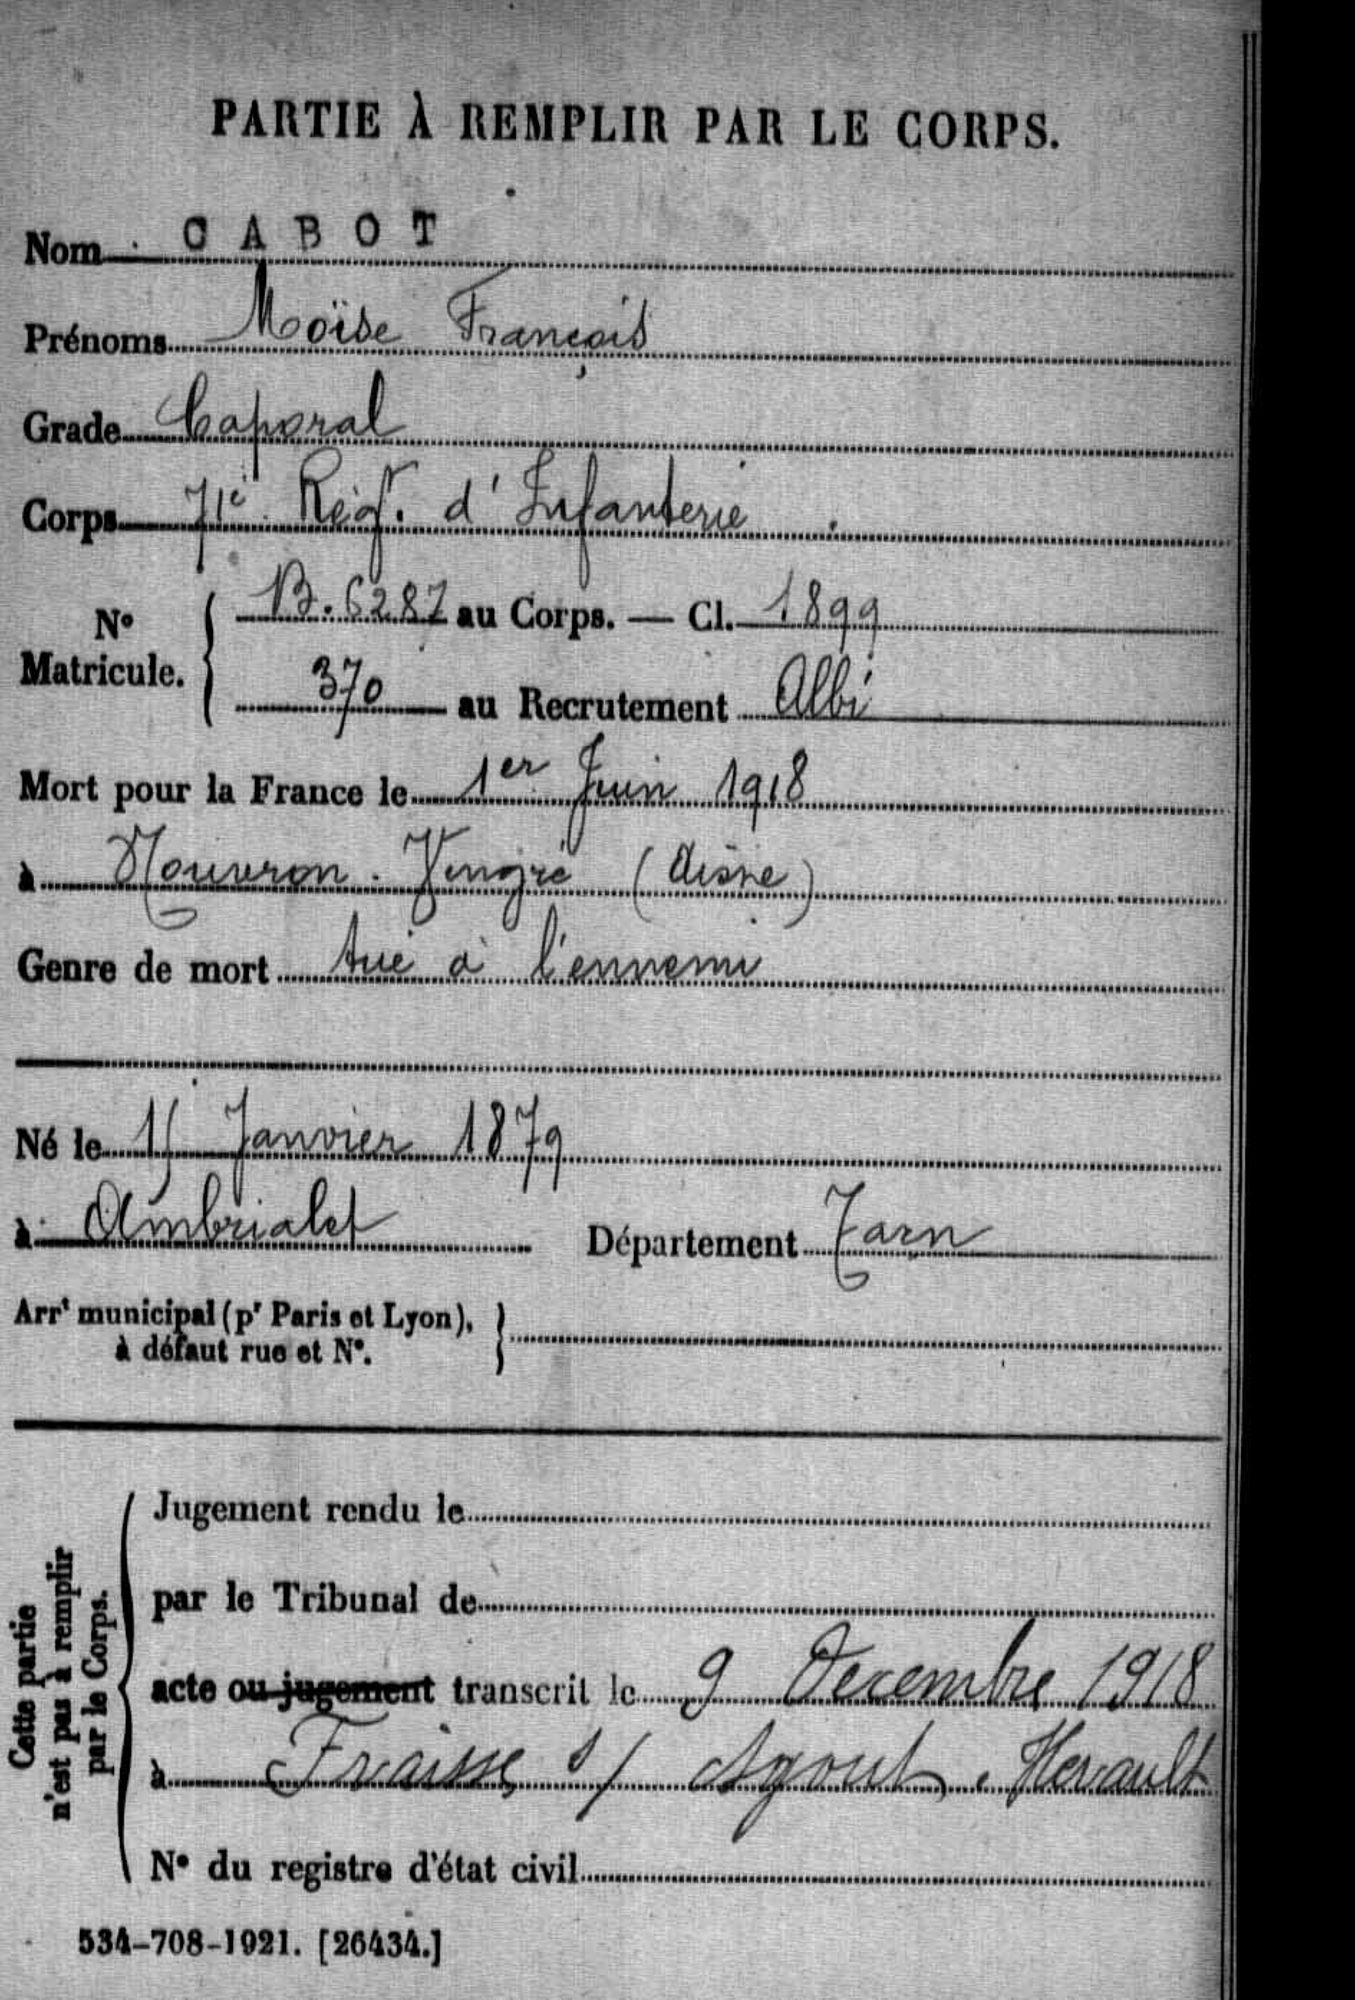 PARTIE À REMPLIR PAR LE CORPS.
Nom CABOT
Prénoms Moïse François
Grade Caporal
Corps 71e Régt. d'Infanterie
No Matricule. { B. 6287 au Corps. — Cl. 1899
370 au Recrutement Albi
Mort pour la France le 1er Juin 1918
à Nouvron-Vingré (Aisne)
Genre de mort tué à l'ennemi
Né le Janvier 1879
à Ambrialet Département Tarn
Arrt municipal (pr Paris et Lyon), }
à défaut rue et No.
Cette partie
n'est pas à remplir
par le Corps.
Jugement rendu le
par le Tribunal de
acte ou jugement transcrit le 9 Decembre 1918
à Fraisse s/ Agout. Herault
No du registre d'état civil
534-708-1921. [26434.]